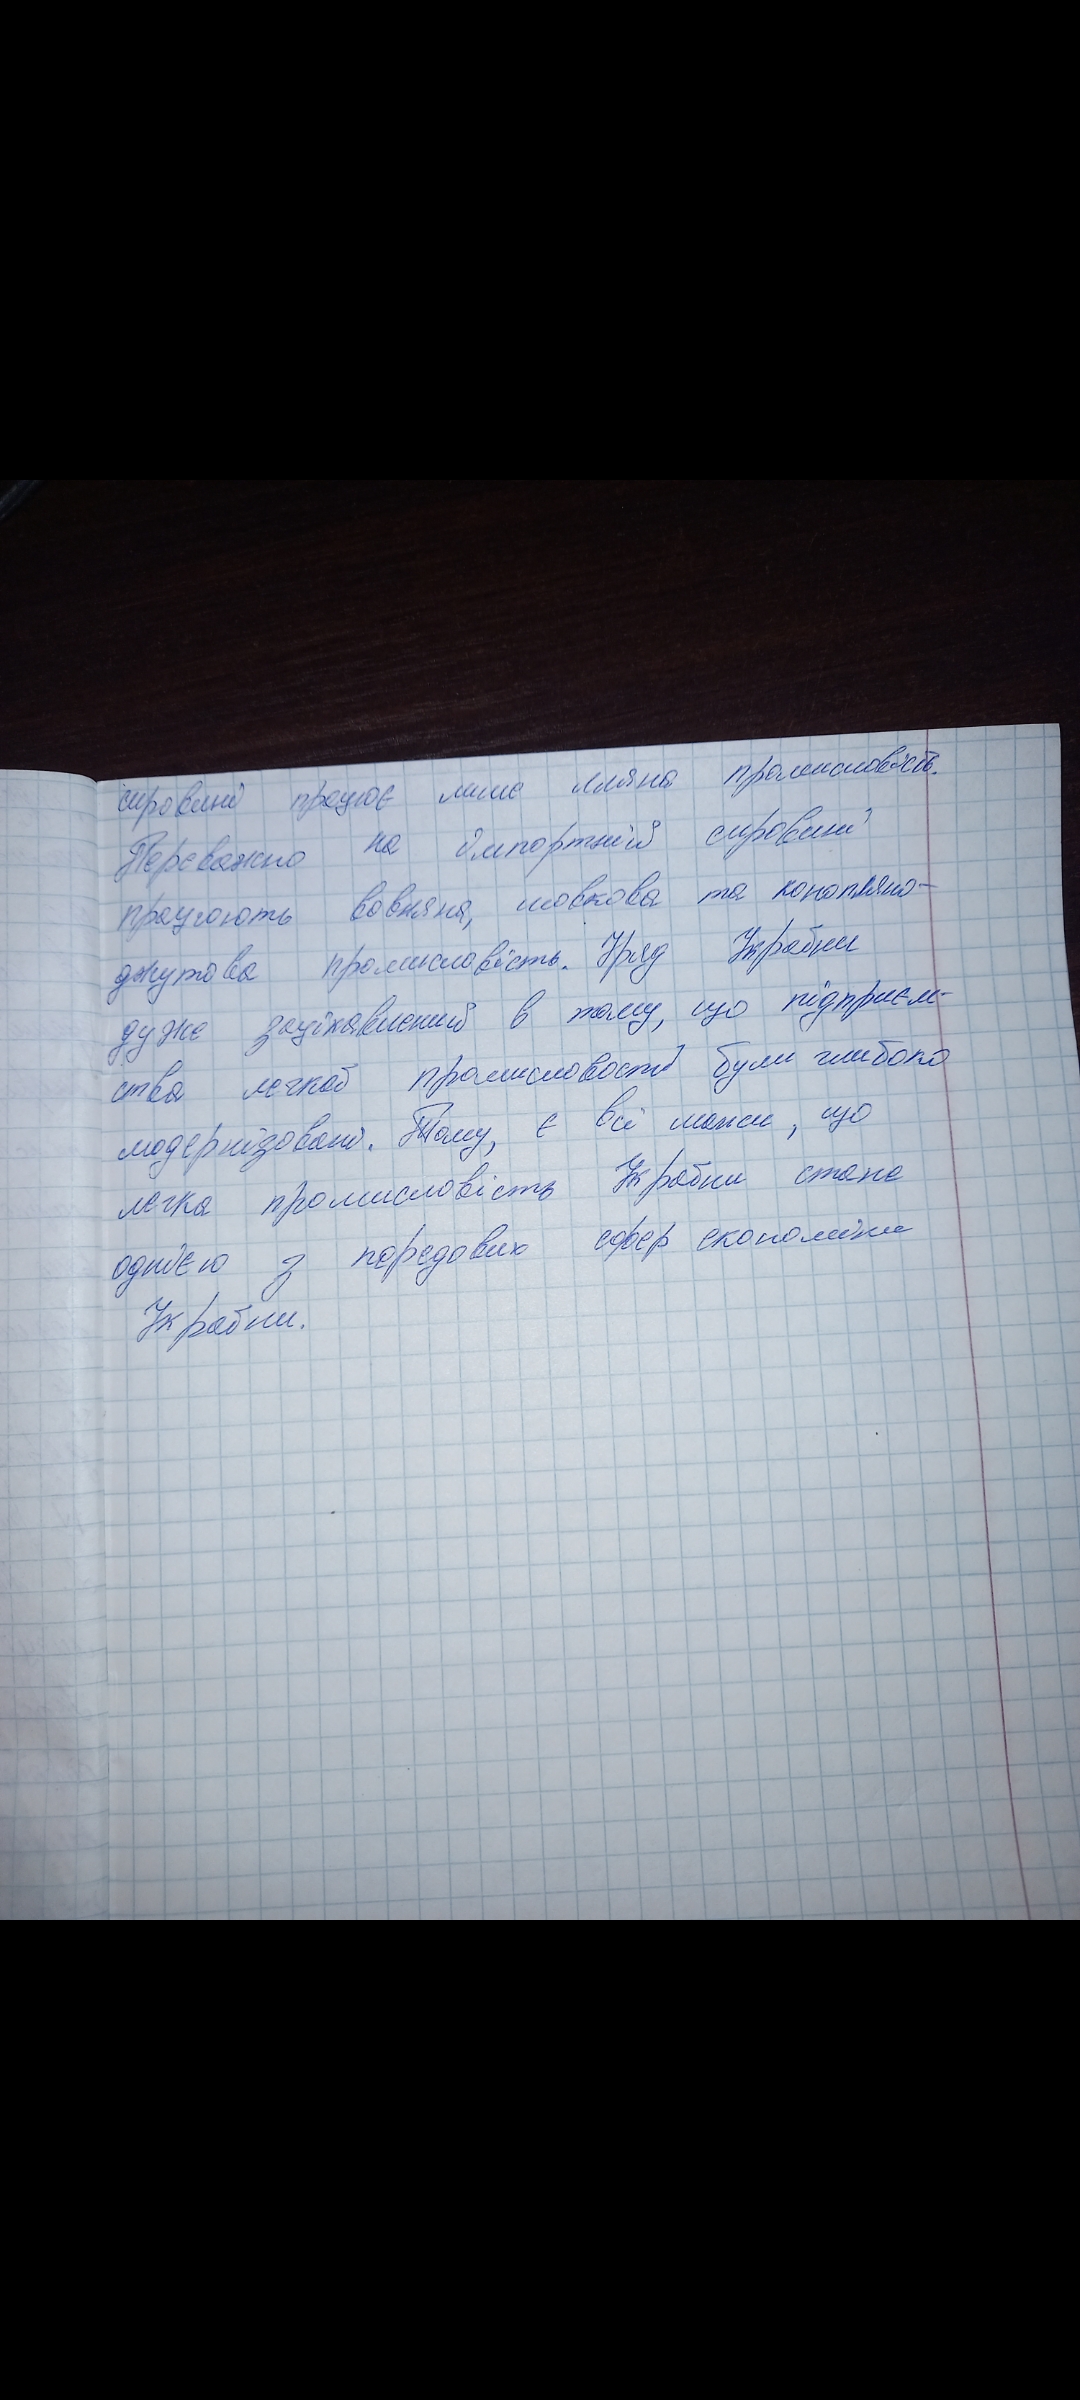 сировині працює лише лляна промисловість.
Переважно на імпортній сировині
працюють вовняна, шовкова та конопляно-
джутова промисловість. Уряд України
дуже зацікавлений в тому, що підприєм-
ства легкої промисловості були глибоко
модернізовані. Тому, є всі , що
легка промисловість України стане
однією з передових сфер економіки
України.